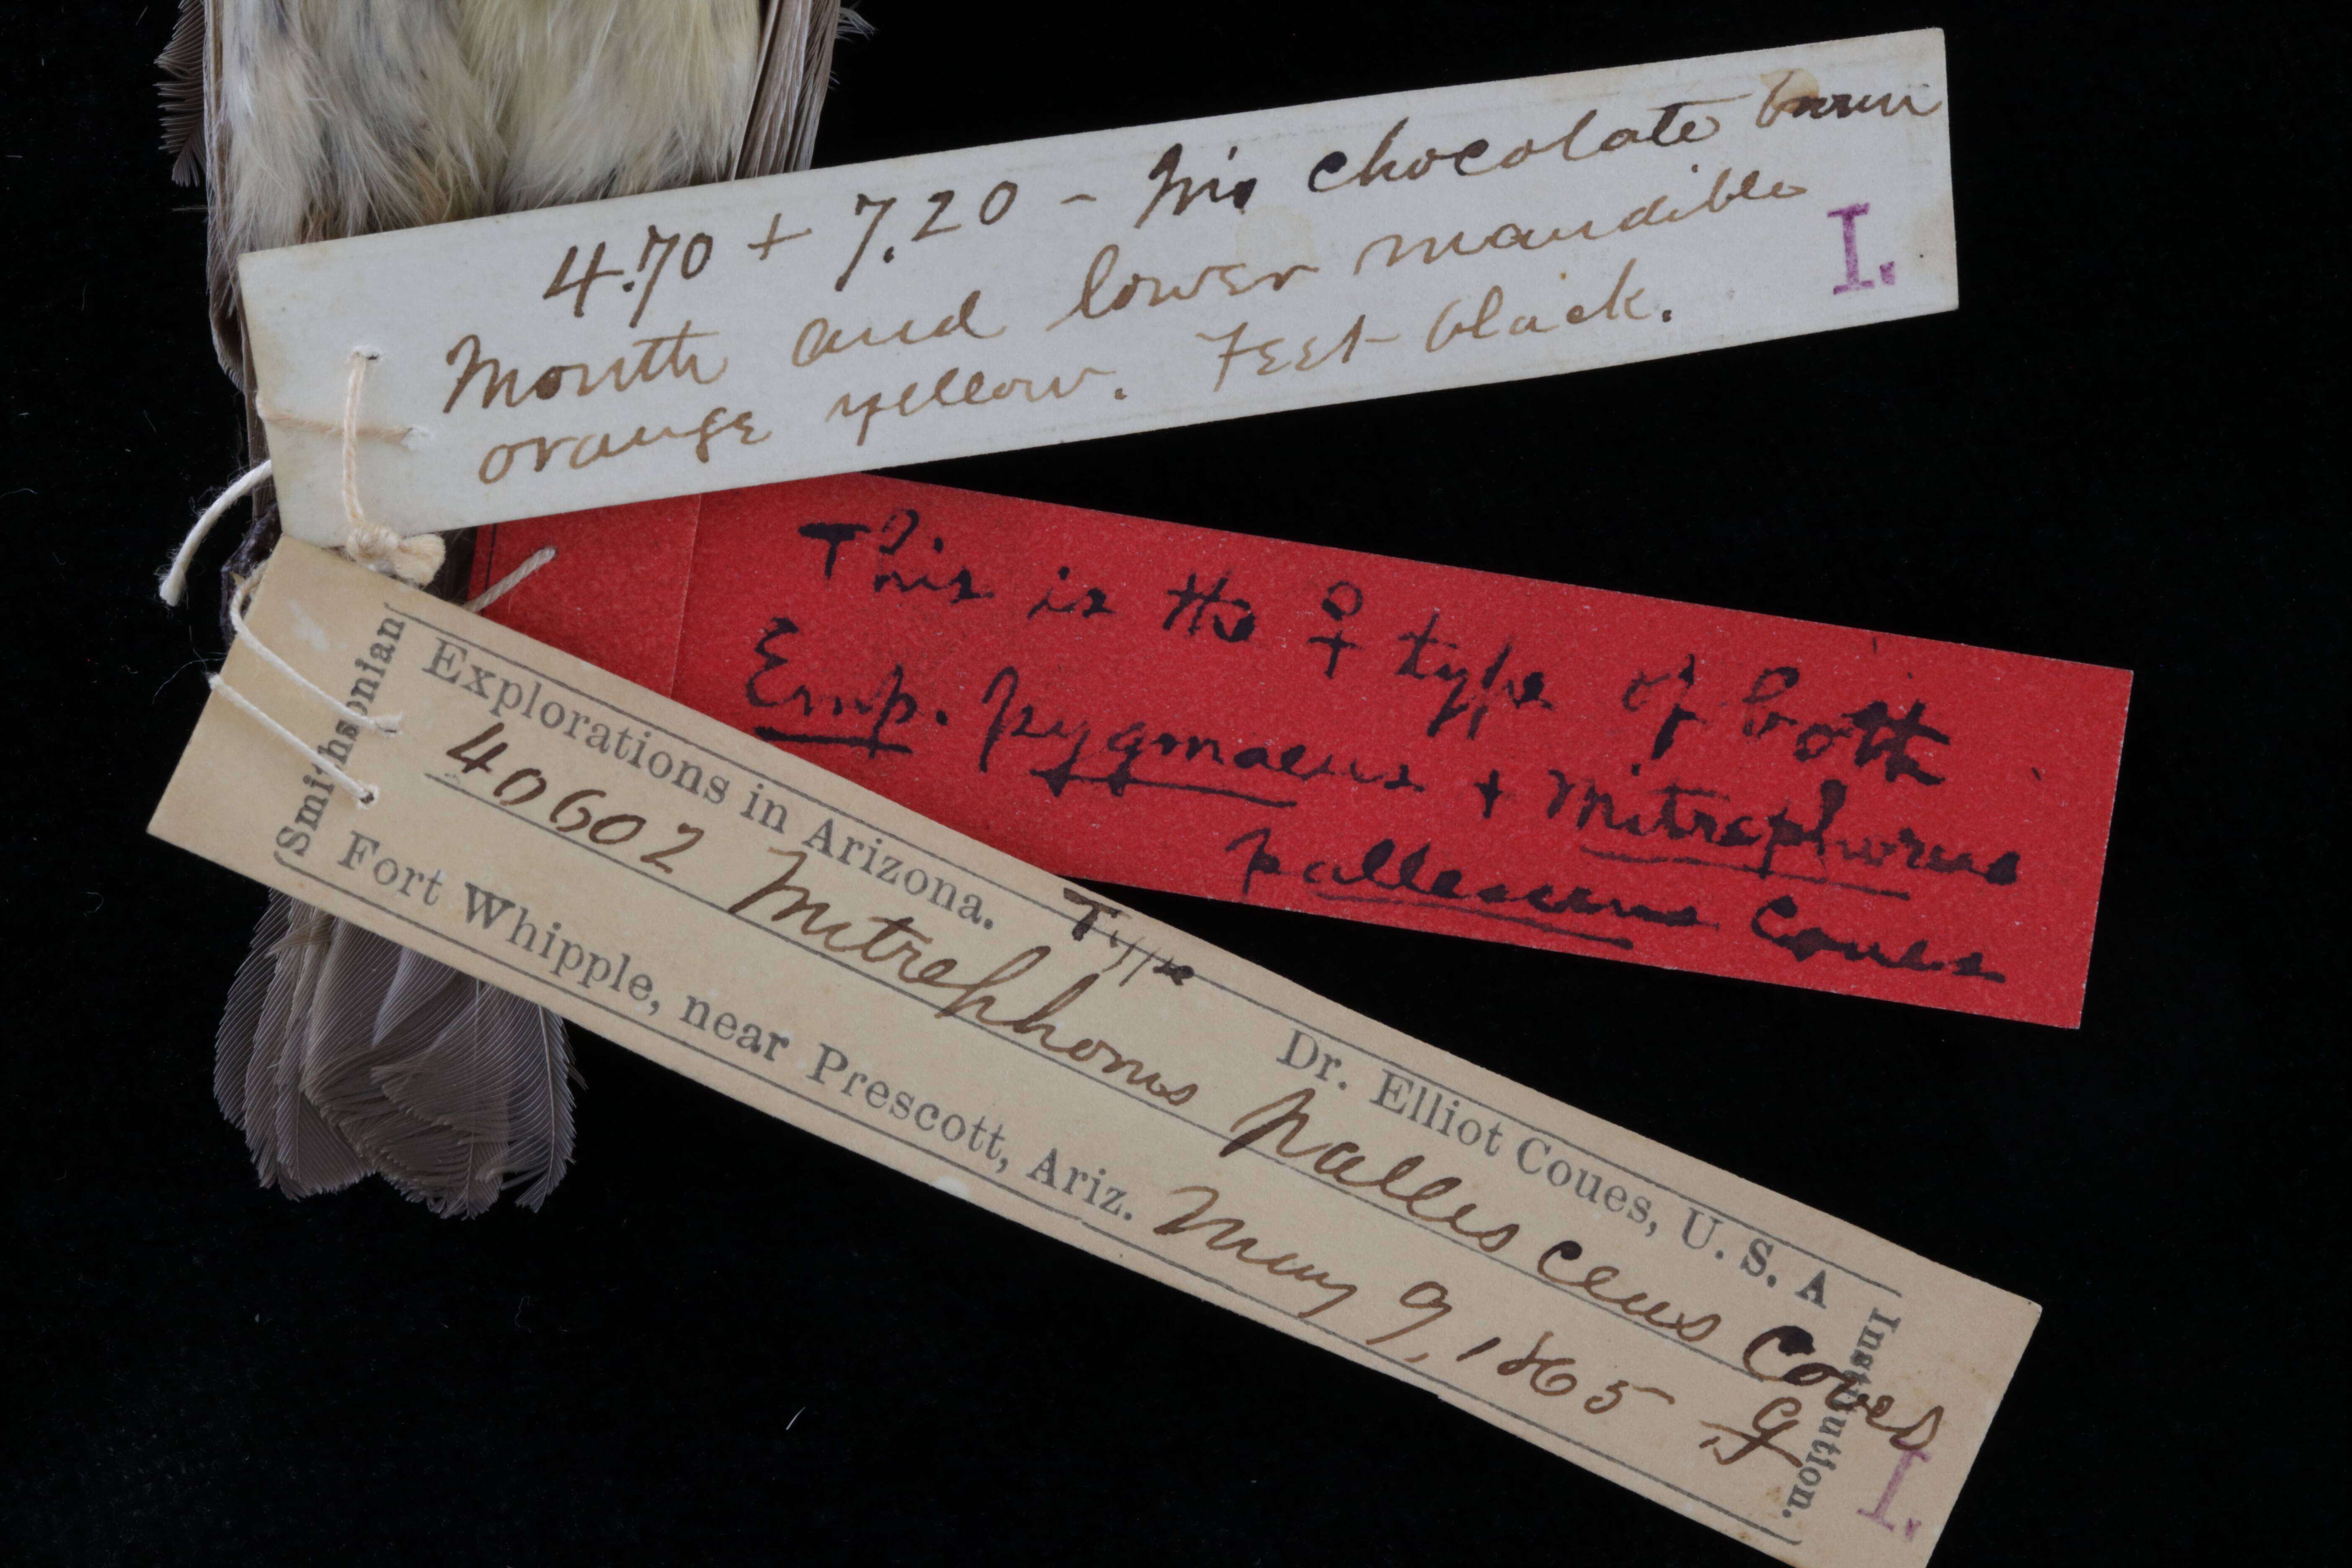 4.70 + 7.20 - Iris chocolate brown
Mouth and lower mandible
orange yellow. Feet black.
I.
This is the ♀ type of both
Emp. pygmaeus + Mitrephorus
pallescens Coues
Smithsonian
Explorations in Arizona. Type Dr. Elliot Coues, U. S. A
40602 Mitrephorus pallescens Coues
Fort Whipple, near Prescott, Ariz. May 9, 1865 ♀
Institution.
I.